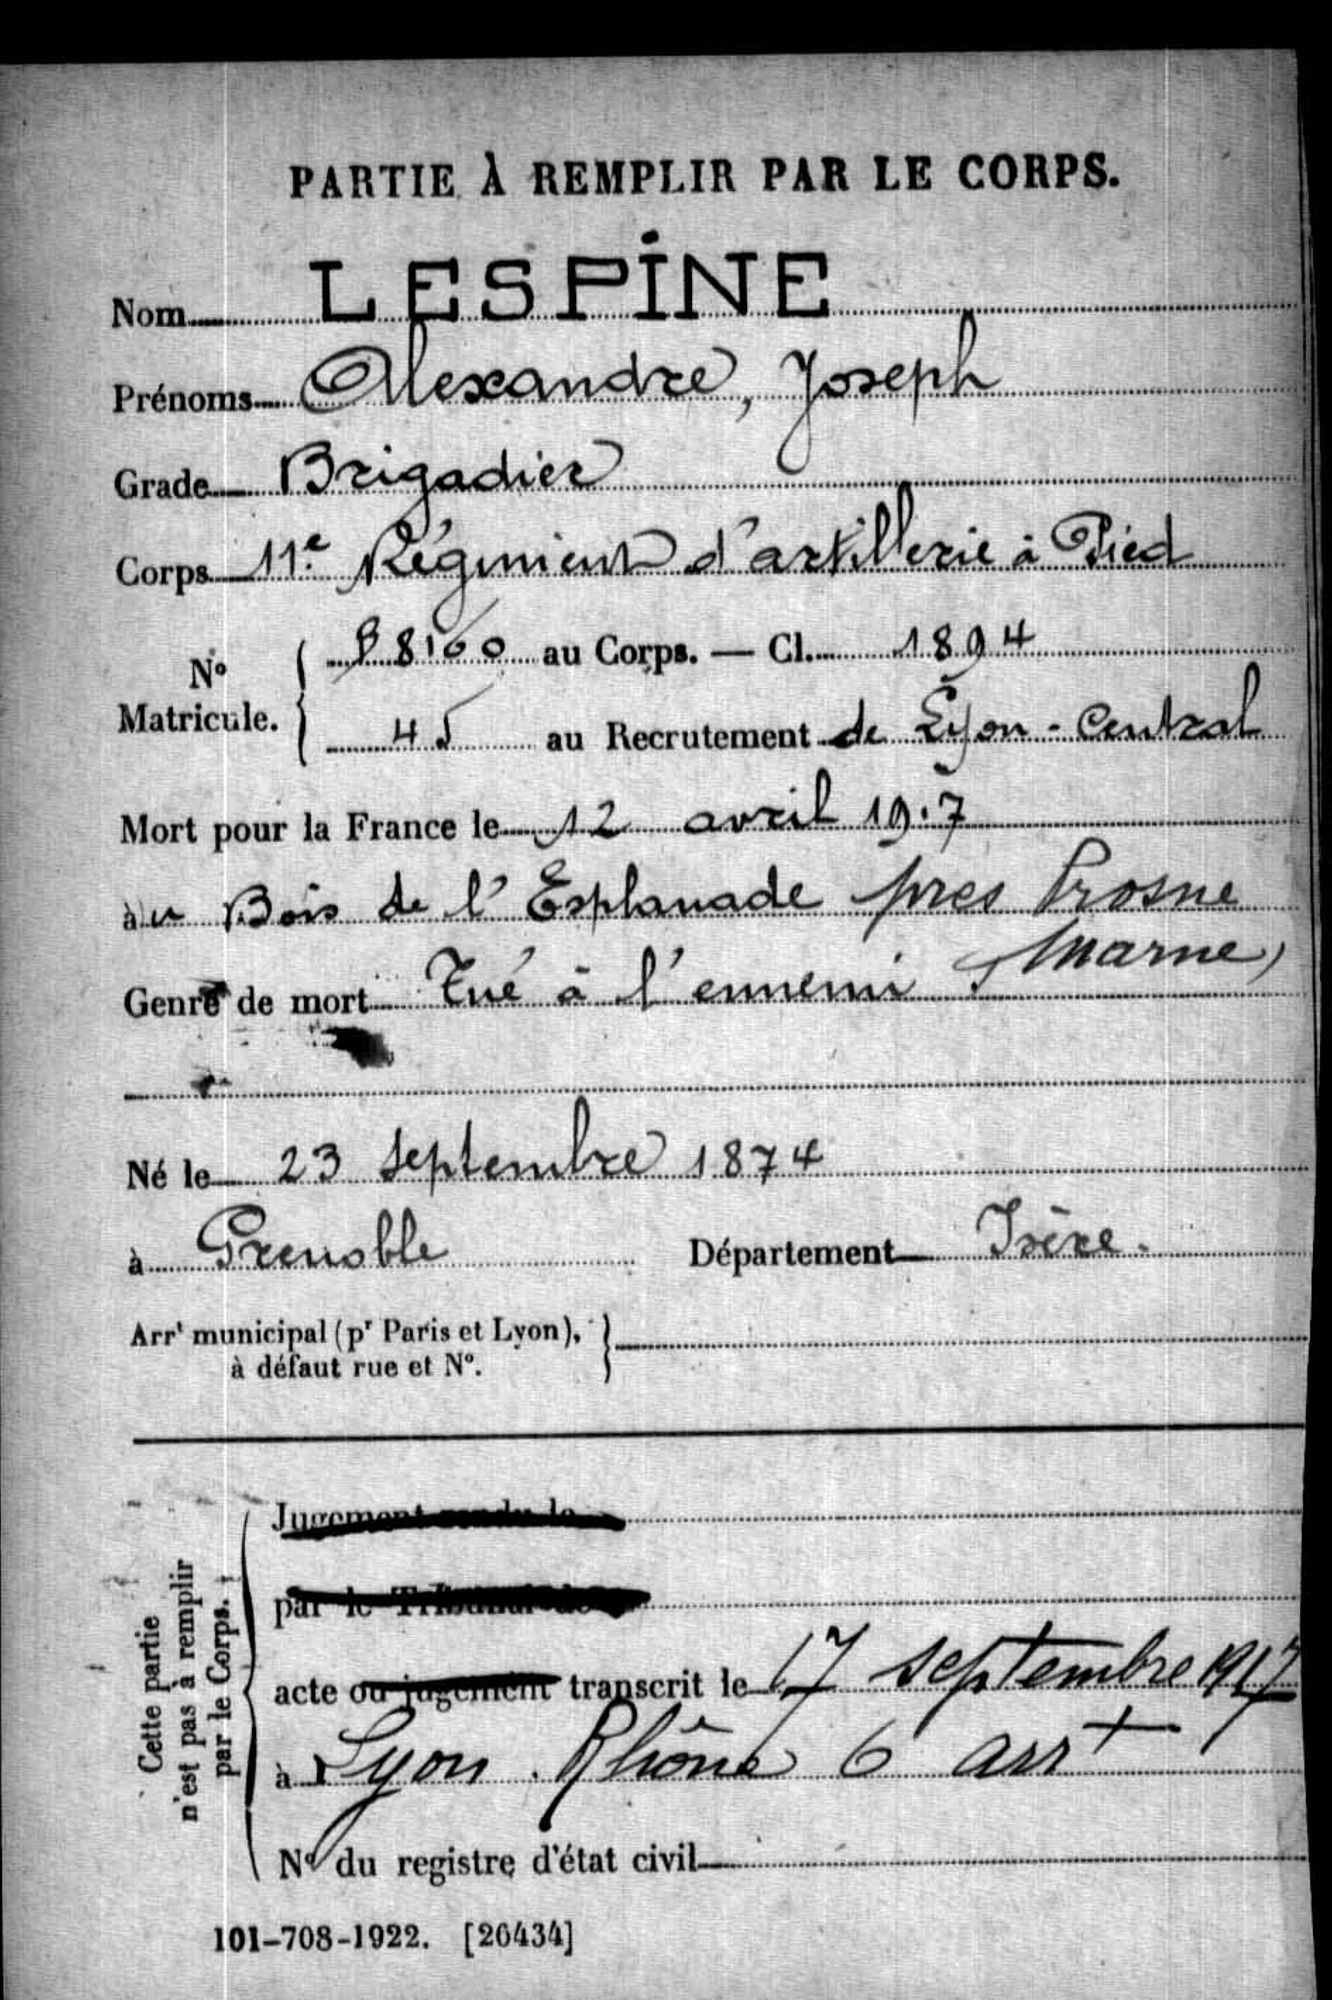 PARTIE À REMPLIR PAR LE CORPS.
Nom LESPINE
Prénoms Alexandre, Joseph
Grade Brigadier
Corps 11e Régiment d'artillerie à Pied
No Matricule. { 8160 au Corps. — Cl. 1894
45 au Recrutement de Lyon - Central
Mort pour la France le 12 avril 19.7
àu Bois de l'Esplanade près Prosne
(Marne)
Genre de mort Tué à l'ennemi
Né le 23 septembre 1874
à Grenoble Département Isère.
Arrt municipal (pr Paris et Lyon), }
à défaut rue et No.
Cette partie
n'est pas à remplir
par le Corps.
Jugement rendu le
par le Tribunal de
acte ou jugement transcrit le 17 septembre 1917
à Lyon. Rhône 6 arrt
No du registre d'état civil
101-708-1922. [26434]